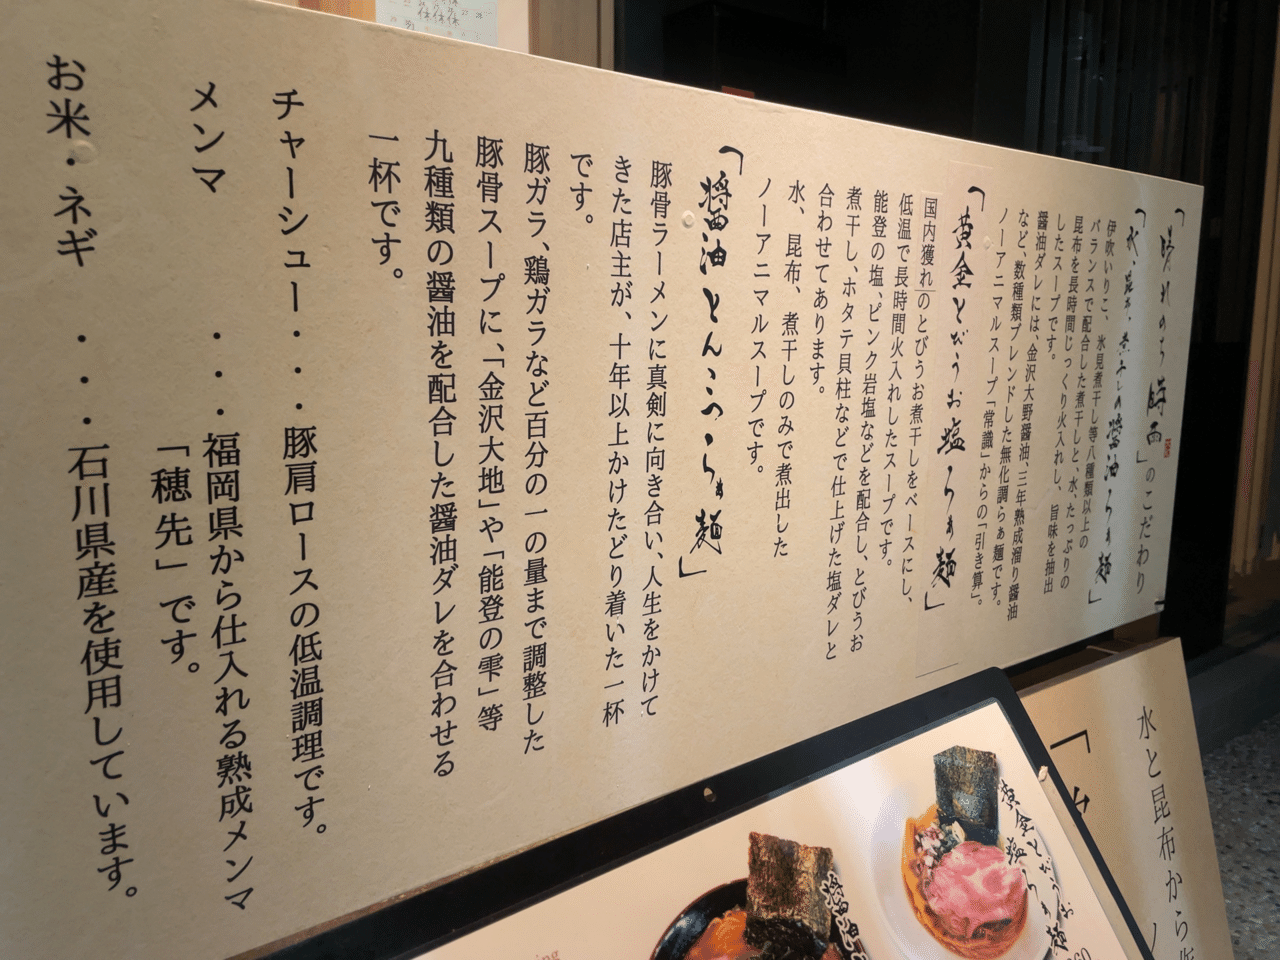 「晴れのち晴雨」のこだわり
「水、昆布、煮干しの醤油らぁ麺」
伊吹いりこ、氷見煮干し等八種類以上の
バランスで配合した煮干しと、水、たっぷりの
昆布を長時間じっくり火入れし、旨味を抽出
したスープです。
醤油ダレには、金沢大野醤油、三年熟成溜り醤油
など、数種類ブレンドした無化調らぁ麺です。
ノーアニマルスープ「常識」からの「引き算」。
「黄金とびうお塩らぁ麺」
国内獲れのとびうお煮干しをベースにし、
低温で長時間火入れしたスープです。
能登の塩、ピンク岩塩などを配合し、とびうお
煮干し、ホタテ貝柱などで仕上げた塩ダレと
合わせてあります。
水、昆布、煮干しのみで煮出した
ノーアニマルスープです。
「醤油とんこつらぁ麺」
豚骨ラーメンに真剣に向き合い、人生をかけて
きた店主が、十年以上かけたどり着いた一杯
です。
豚ガラ、鶏ガラなど百分の一の量まで調整した
豚骨スープに、「金沢大地」や「能登の雫」等
九種類の醤油を配合した醤油ダレを合わせる
一杯です。
チャーシュー・・・豚肩ロースの低温調理です。
メンマ ・・・福岡県から仕入れる熟成メンマ
「穂先」です。
お米・ネギ ・・・石川県産を使用しています。
黄金とびうお
塩らぁ麺
水と昆布から